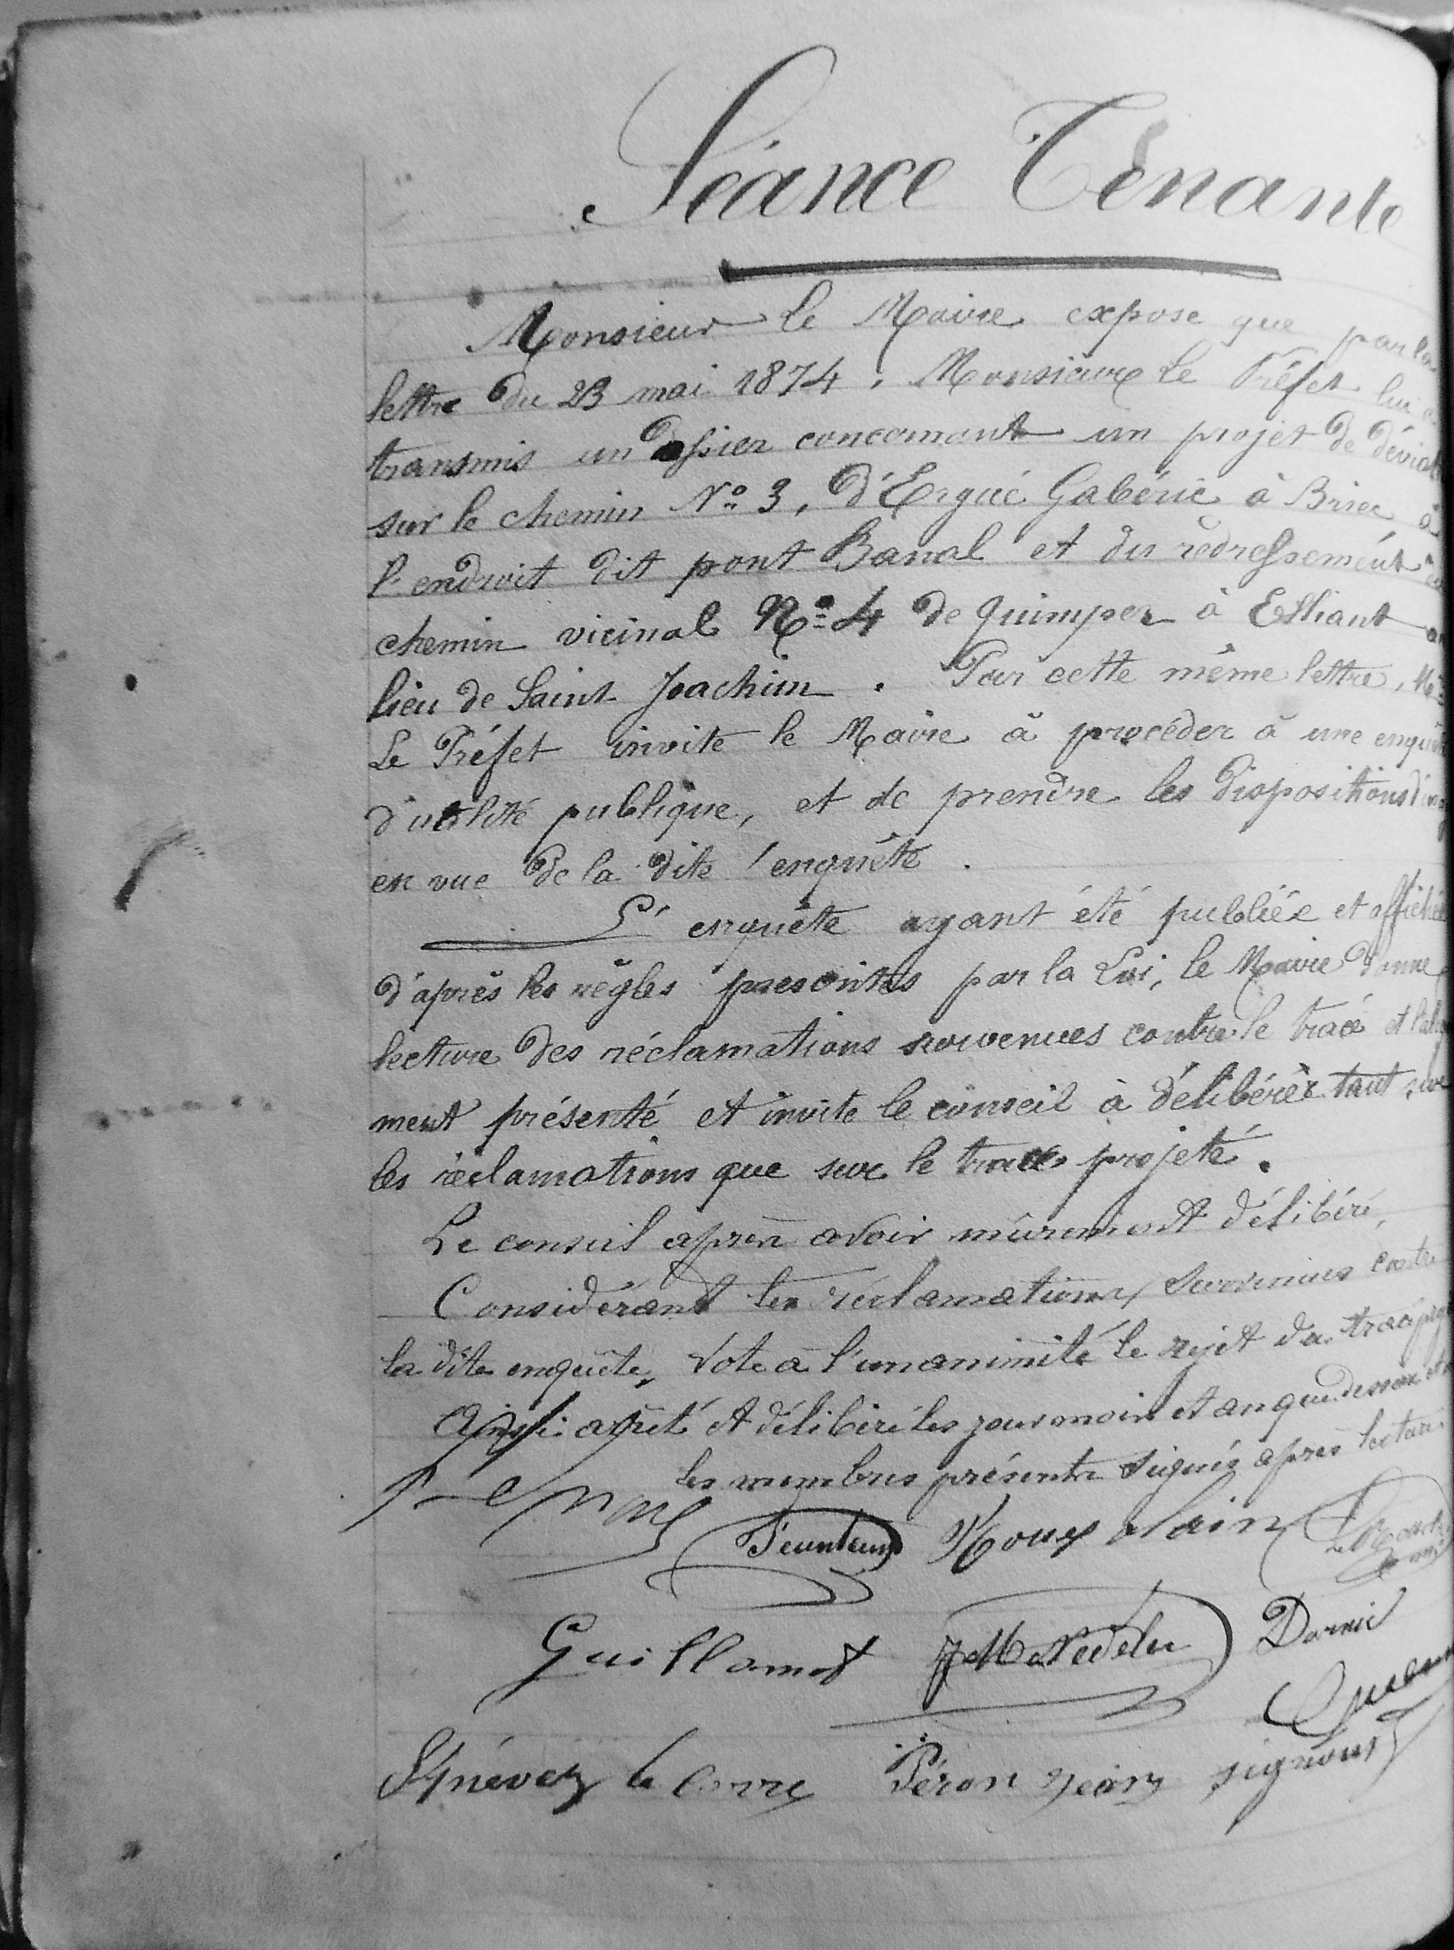 Séance Tenante
Monsieur le Maire expose que par la
lettre du 23 mai 1874, Monsieur Le Préfet lui a
transmis un dossier concernant un projet de
sur le chemin Nº 3, d'Ergué Gabéric à Briec à
l'endroit dit pont Banal et du redressement
chemin vicinal Nº 4 de Quimper à Elliant
lieu de Saint Joachim. Par cette même lettre,
Le Préfet invite le Maire à procéder à une
d'utilité publique, et de prendre les dispositions
en vue de la dite enquête.
L'enquête ayant été publiée et
d'après les règles prescrites par la Loi, le Maire donne
lecture des réclamations survenues contre le tracé et
ment présenté et invite le conseil à délibérer tant sur
les réclamations que sur le tracé projeté.
Le conseil après avoir mûrement délibéré,
Considérant les réclamations survenues contre
la dite enquête, vote à l'unanimité le rejet du tracé
Ainsi arrêté et délibéré les jour mois et an que dessus
les membres présents signés après lecture
Feunteun Rouz alain
Guillamot JM Nédélec Dornic
Sznévez le Corre Péron jean signour